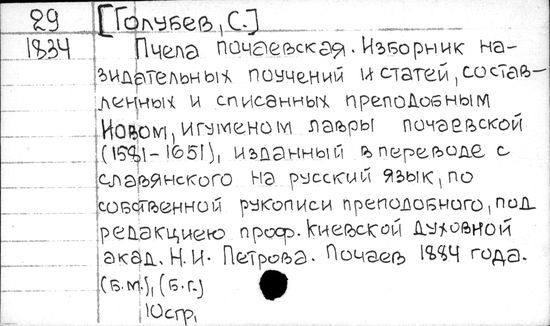 29 [Голубев, С.]
1834 Пчела почаевская. Изборник на-
зидательных поучений и статей, состав-
ленных и списанных преподобным
Иовом, игуменом лавры почаевской
(1581-1651), изданный в переводе с
славянского на русский язык, по
собственной рукописи преподобного, под
редакциею проф. Киевской духовной
акад. Н.И. Петрова. Почаев 1884 года.
(б.м.), (б.г.)
10 стр.